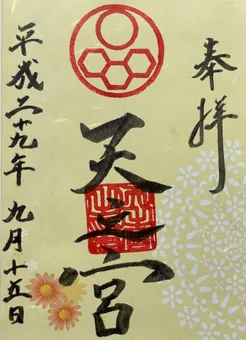 奉拝
天之宮
平成二十九年 九月十五日